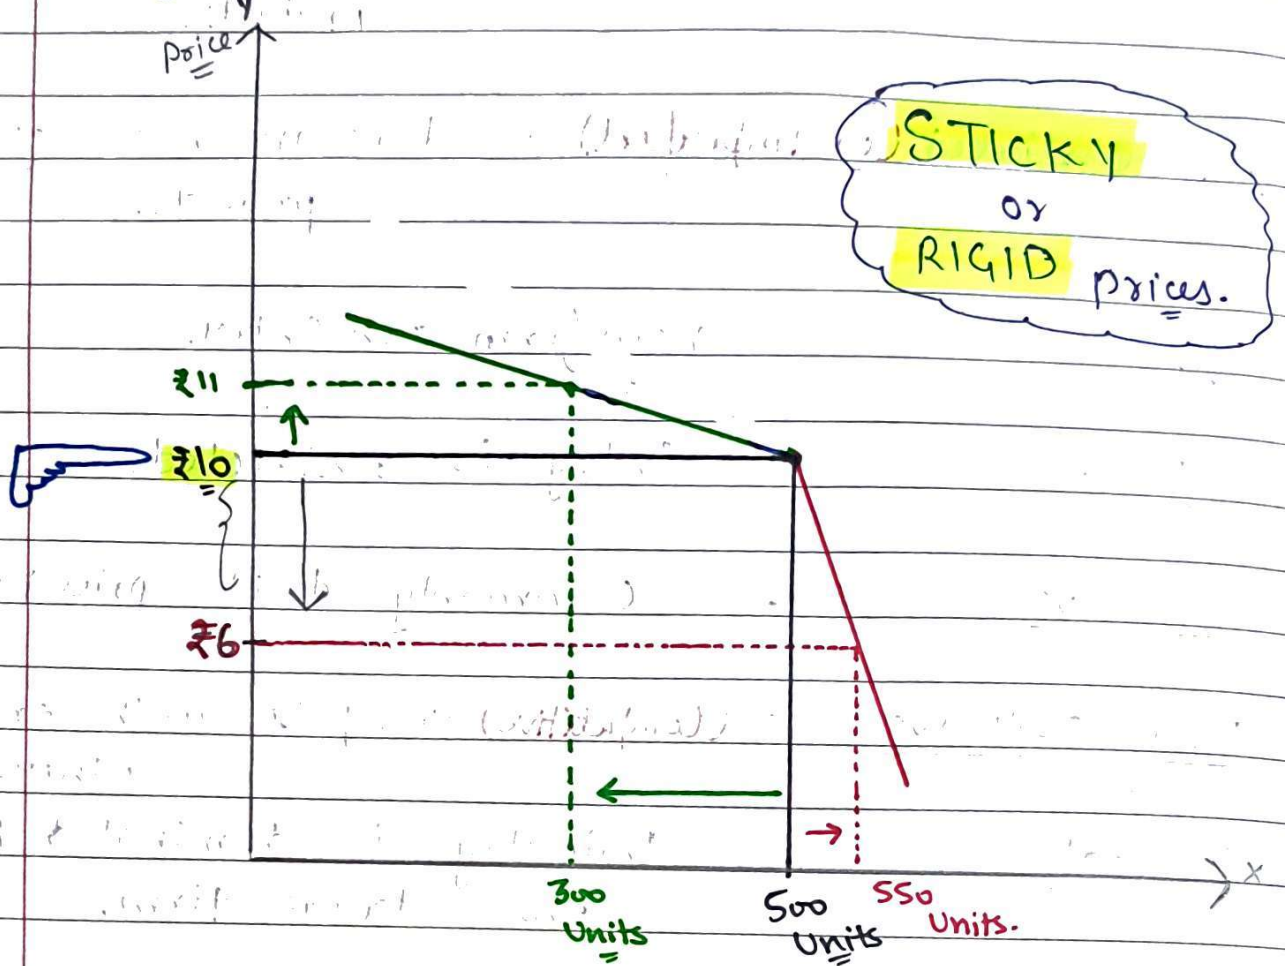 Y
Price
STICKY
or
RIGID prices.
₹11
₹10
₹6
X
300
Units
500
Units
550
Units.